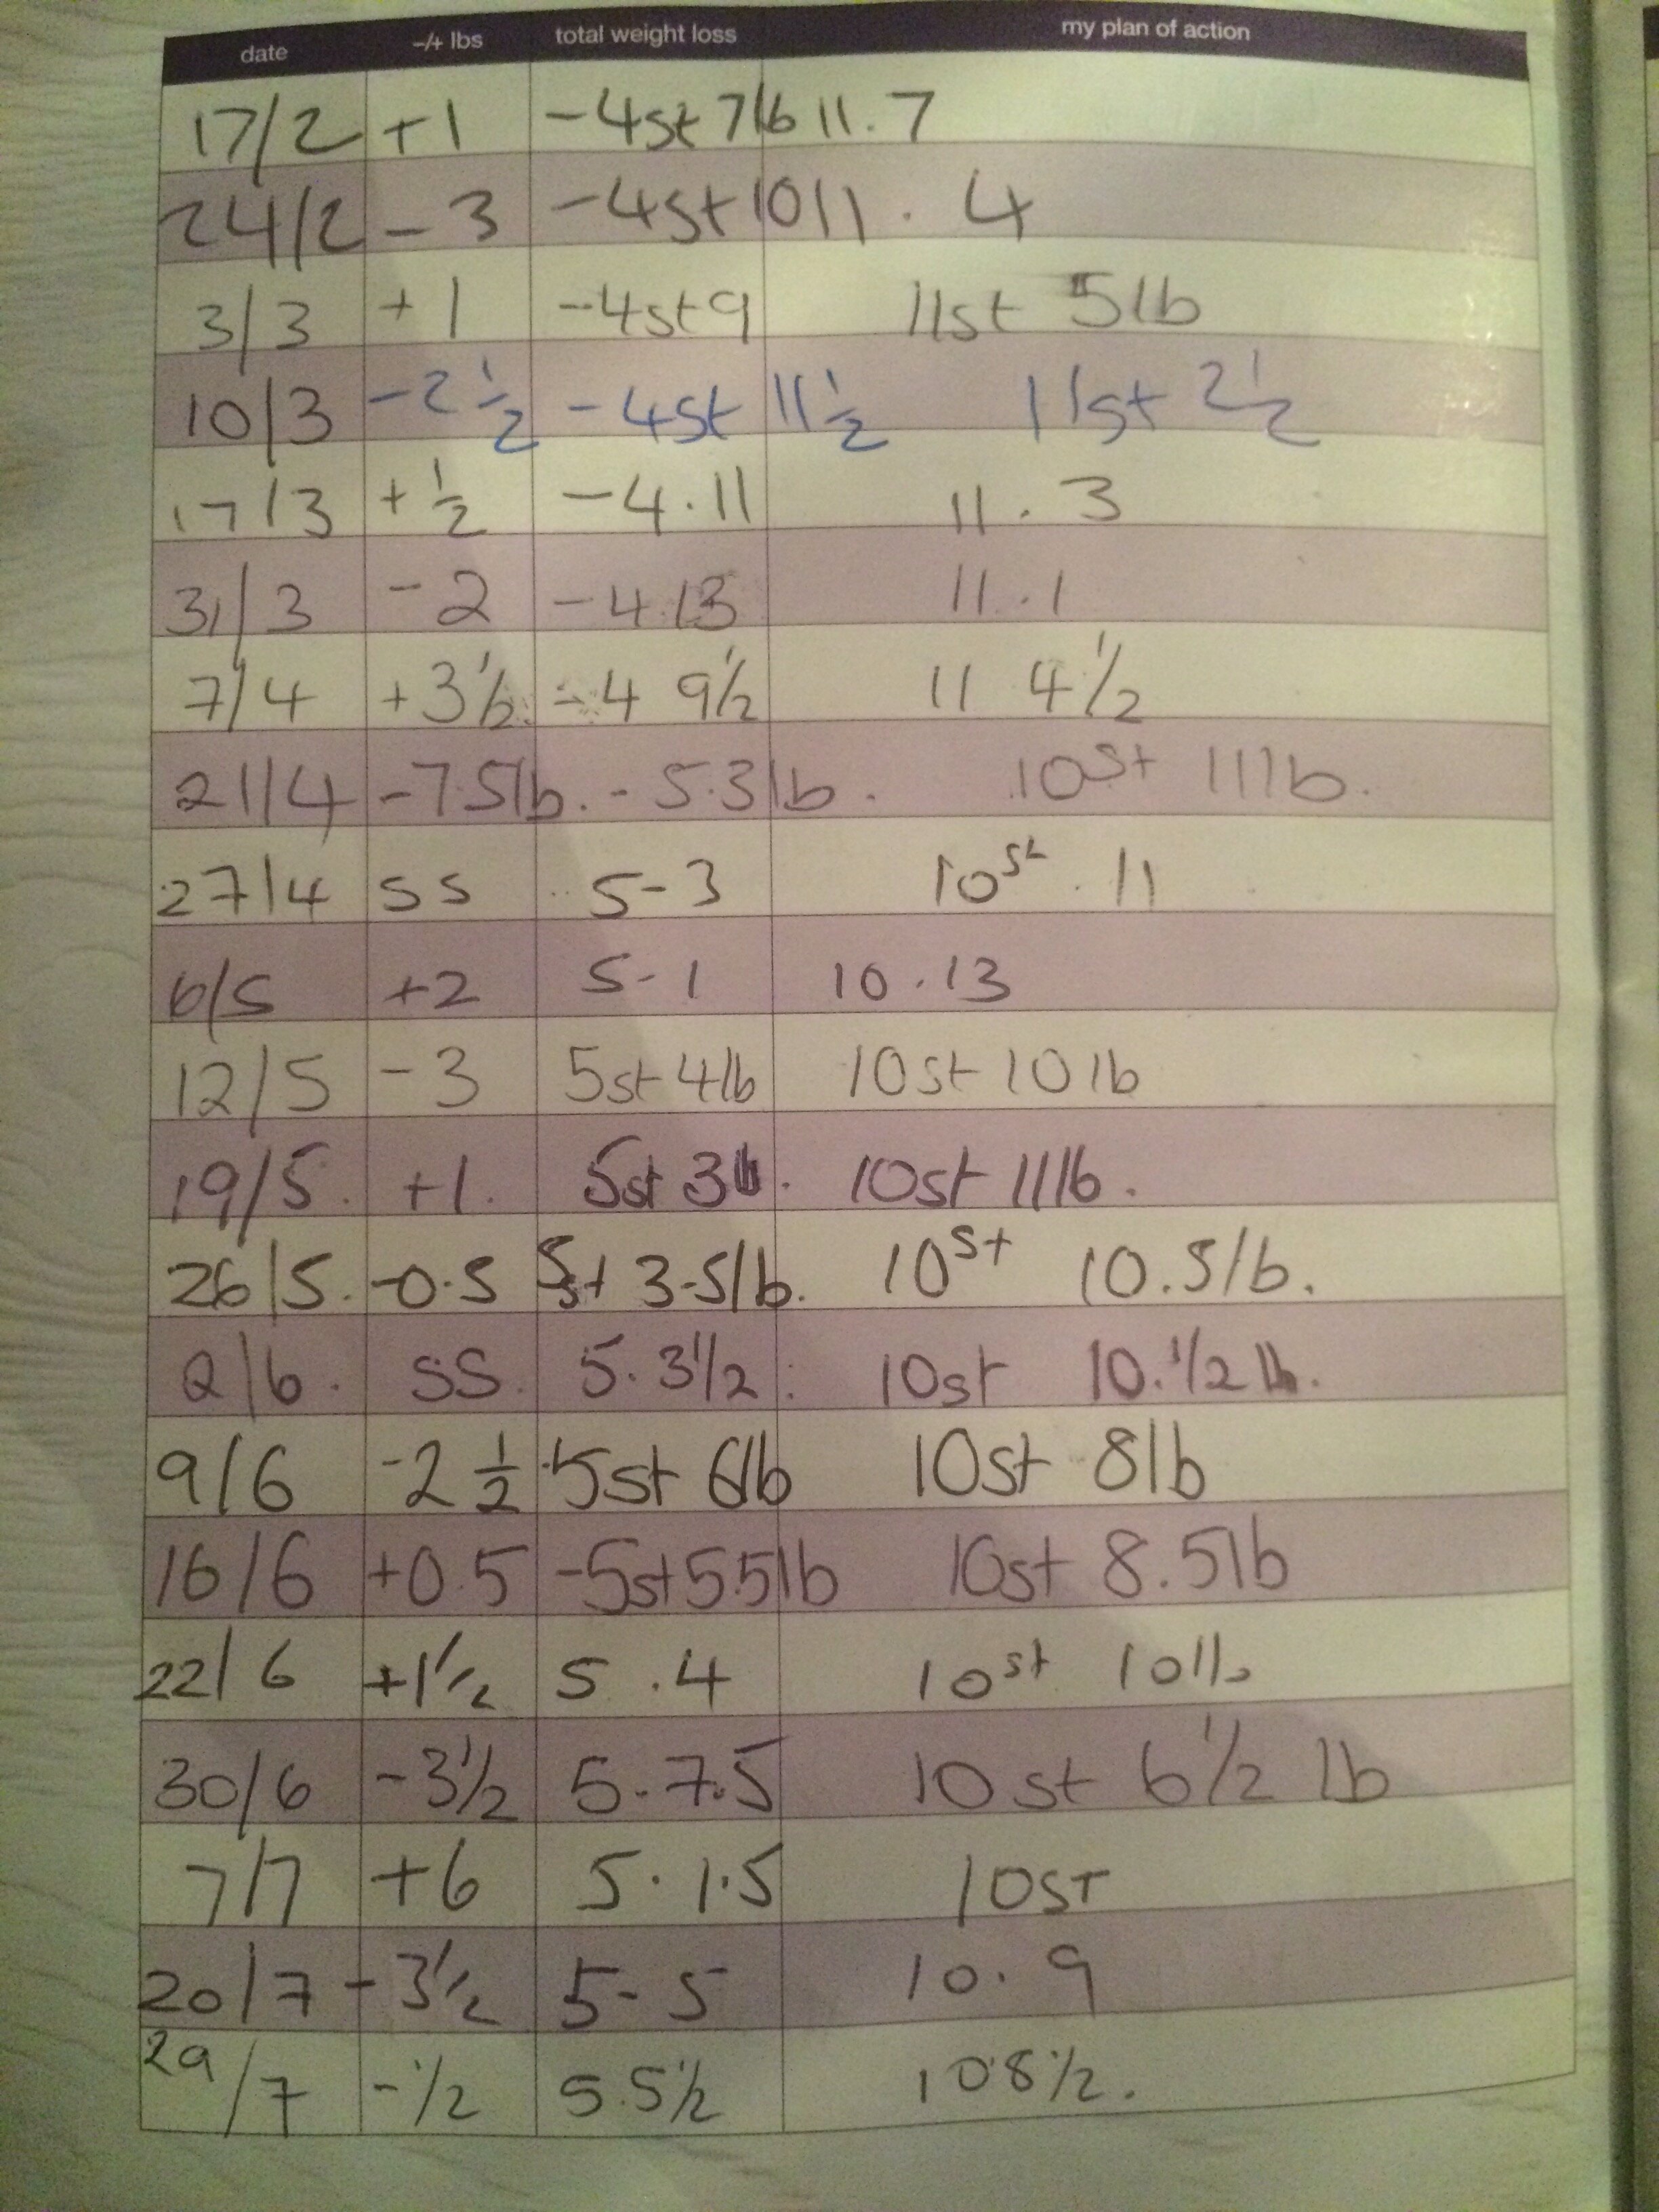 date -/+ lbs total weight loss my plan of action
17/2 +1 -4st 7lb 11.7
24/2 -3 -4st 10 11.4
3/3 +1 -4st 9 11st 5lb
10/3 -2 1/2 -4st 11 1/2 11st 2 1/2
17/3 +1/2 -4.11 11.3
31/3 -2 -4.13 11.1
7/4 +3 1/2 -4 9 1/2 11 4 1/2
21/4 -7.5lb. -5.3lb. 10st 11lb.
27/4 ss 5-3 10st. 11
6/5 +2 5-1 10.13
12/5 -3 5st 4lb 10st 10lb
19/5. +1. 5st 3lb. 10st 11lb.
26/5. -0.5 5st 3.5lb. 10st 10.5lb.
2/6. SS. 5.3 1/2. 10st 10.1/2 lb.
9/6 -2 1/2 5st 6lb 10st 8lb
16/6 +0.5 -5st 5.5lb 10st 8.5lb
22/6 +1 1/2 5.4 10st 10lb
30/6 -3 1/2 5.7.5 10st 6 1/2 lb
7/7 +6 5.1.5 10st
20/7 -3 1/2 5-5 10.9
29/7 -1/2 5.5 1/2 10 8 1/2.